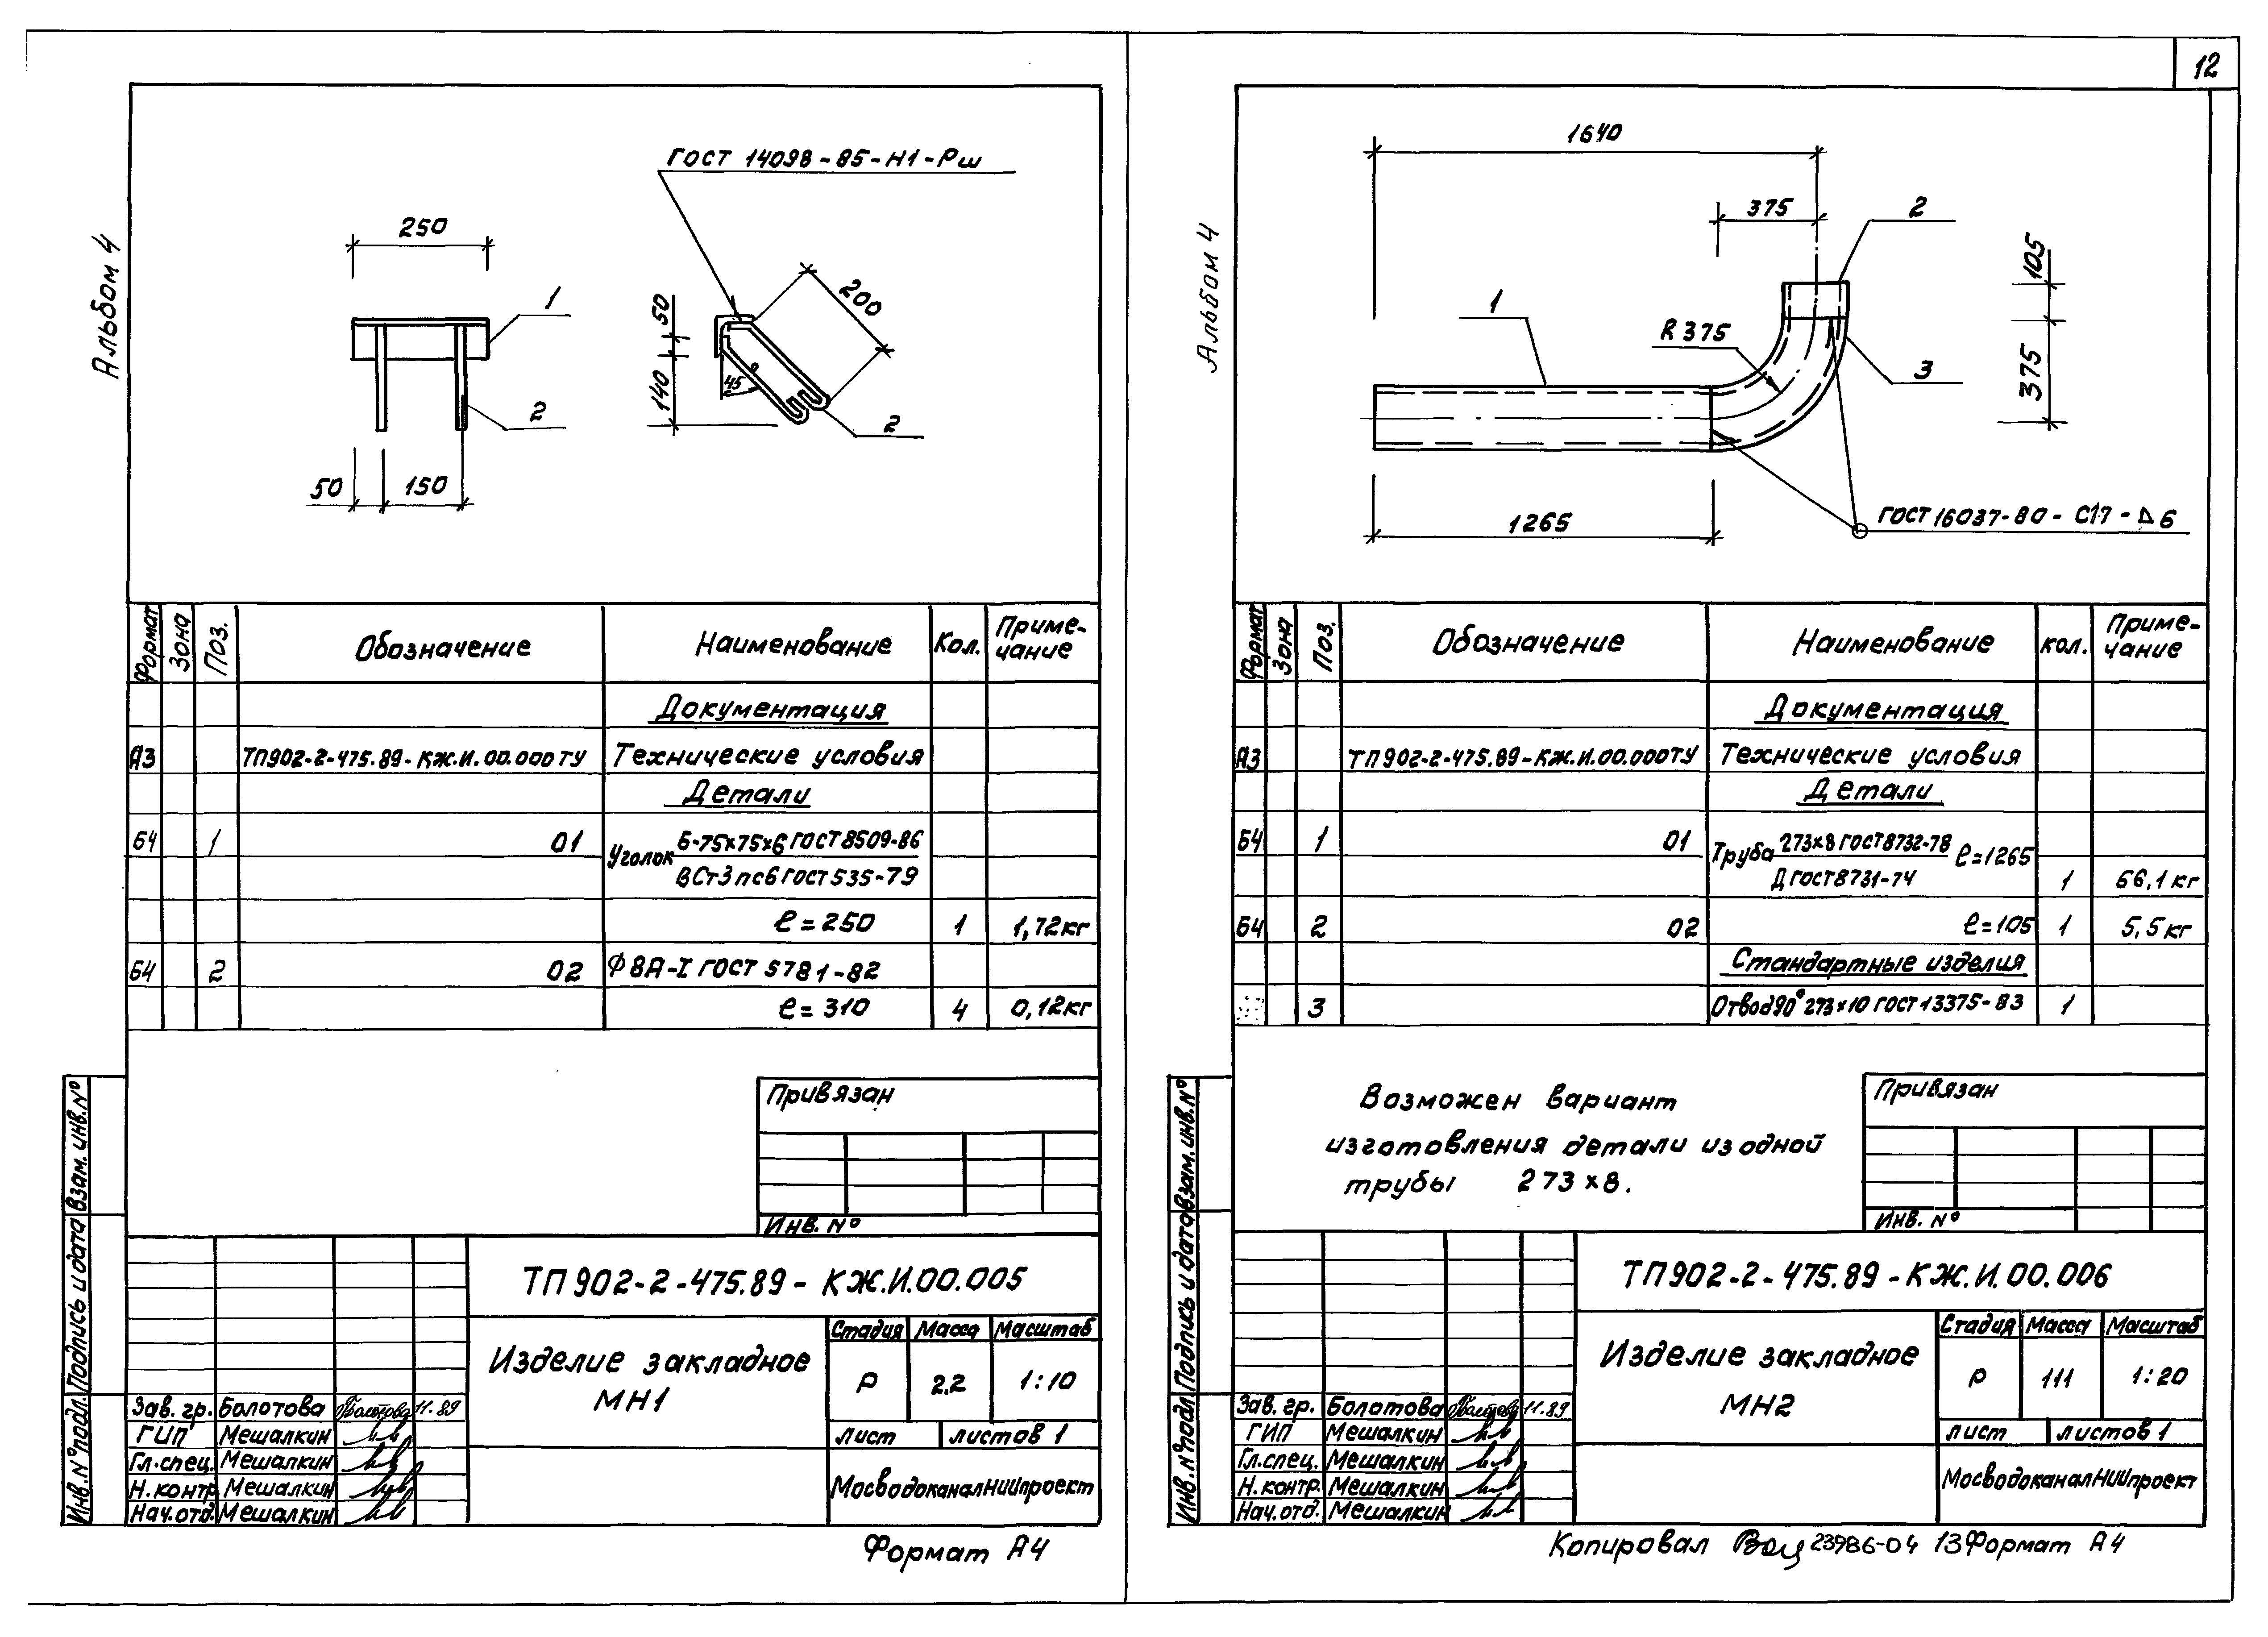 12
Альбом 4
ГОСТ 14098-85-Н1-Рш
250
1
2
50
150
50
140
200
45°
2
Формат
Зона
Поз.
Обозначение
Наименование
Кол.
Приме-
чание
Документация
А3 ТП902-2-475.89-КЖ.И.00.000ТУ Технические условия
Детали
Б4 1 01 Уголок Б-75х75х6 ГОСТ 8509-86
ВСт3пс6 ГОСТ 535-79
ℓ=250 1 1,72кг
Б4 2 02 Ф8А-I ГОСТ 5781-82
ℓ=310 4 0,12кг
Привязан
Инв. №
ТП902-2-475.89-КЖ.И.00.005
Изделие закладное
МН1
Стадия Масса Масштаб
Р 2.2 1:10
Лист Листов 1
МосводоканалНИИпроект
Зав. гр. Болотова Болотова 11.89
ГИП Мешалкин
Гл.спец. Мешалкин
Н.контр. Мешалкин
Нач.отд. Мешалкин
Взам. инв.№
Подпись и дата
Инв.№подл.
Формат А4
Альбом 4
1640
375
2
105
1
R 375
3
375
1265
ГОСТ 16037-80-С17-Δ6
Формат
Зона
Поз.
Обозначение
Наименование
Кол.
Приме-
чание
Документация
А3 ТП902-2-475.89-КЖ.И.00.000ТУ Технические условия
Детали
Б4 1 01 Труба 273х8 ГОСТ 8732-78 ℓ=1265
Д ГОСТ 8731-74 1 66,1кг
Б4 2 02 ℓ=105 1 5,5кг
Стандартные изделия
3 Отвод 90° 273х10 ГОСТ 13375-83 1
Возможен вариант
изготовления детали из одной
трубы 273х8.
Привязан
Инв. №
ТП902-2-475.89-КЖ.И.00.006
Изделие закладное
МН2
Стадия Масса Масштаб
Р 111 1:20
Лист Листов 1
МосводоканалНИИпроект
Зав. гр. Болотова Болотова 11.89
ГИП Мешалкин
Гл.спец. Мешалкин
Н.контр. Мешалкин
Нач.отд. Мешалкин
Взам.инв.№
Подпись и дата
Инв.№подл.
Копировал 23986-04 13 Формат А4